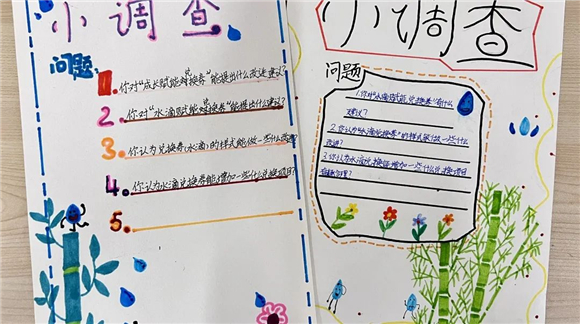 小调查
问题:
1.你对“成长赋能兑换券”能提出什么改进建议?
2.你对“水滴赋能兑换券”能提出什么建议?
3.你认为兑换券(水滴)的样式能做一些什么改进?
4.你认为水滴兑换券能增加一些什么兑换项目?
5.
小调查
问题
1.你对“水滴赋能兑换券”有什么
建议?
2.你认为“水滴赋能兑换券”的样式能做一些什么
改进?
3.你认为水滴兑换券增加一些什么兑换项目